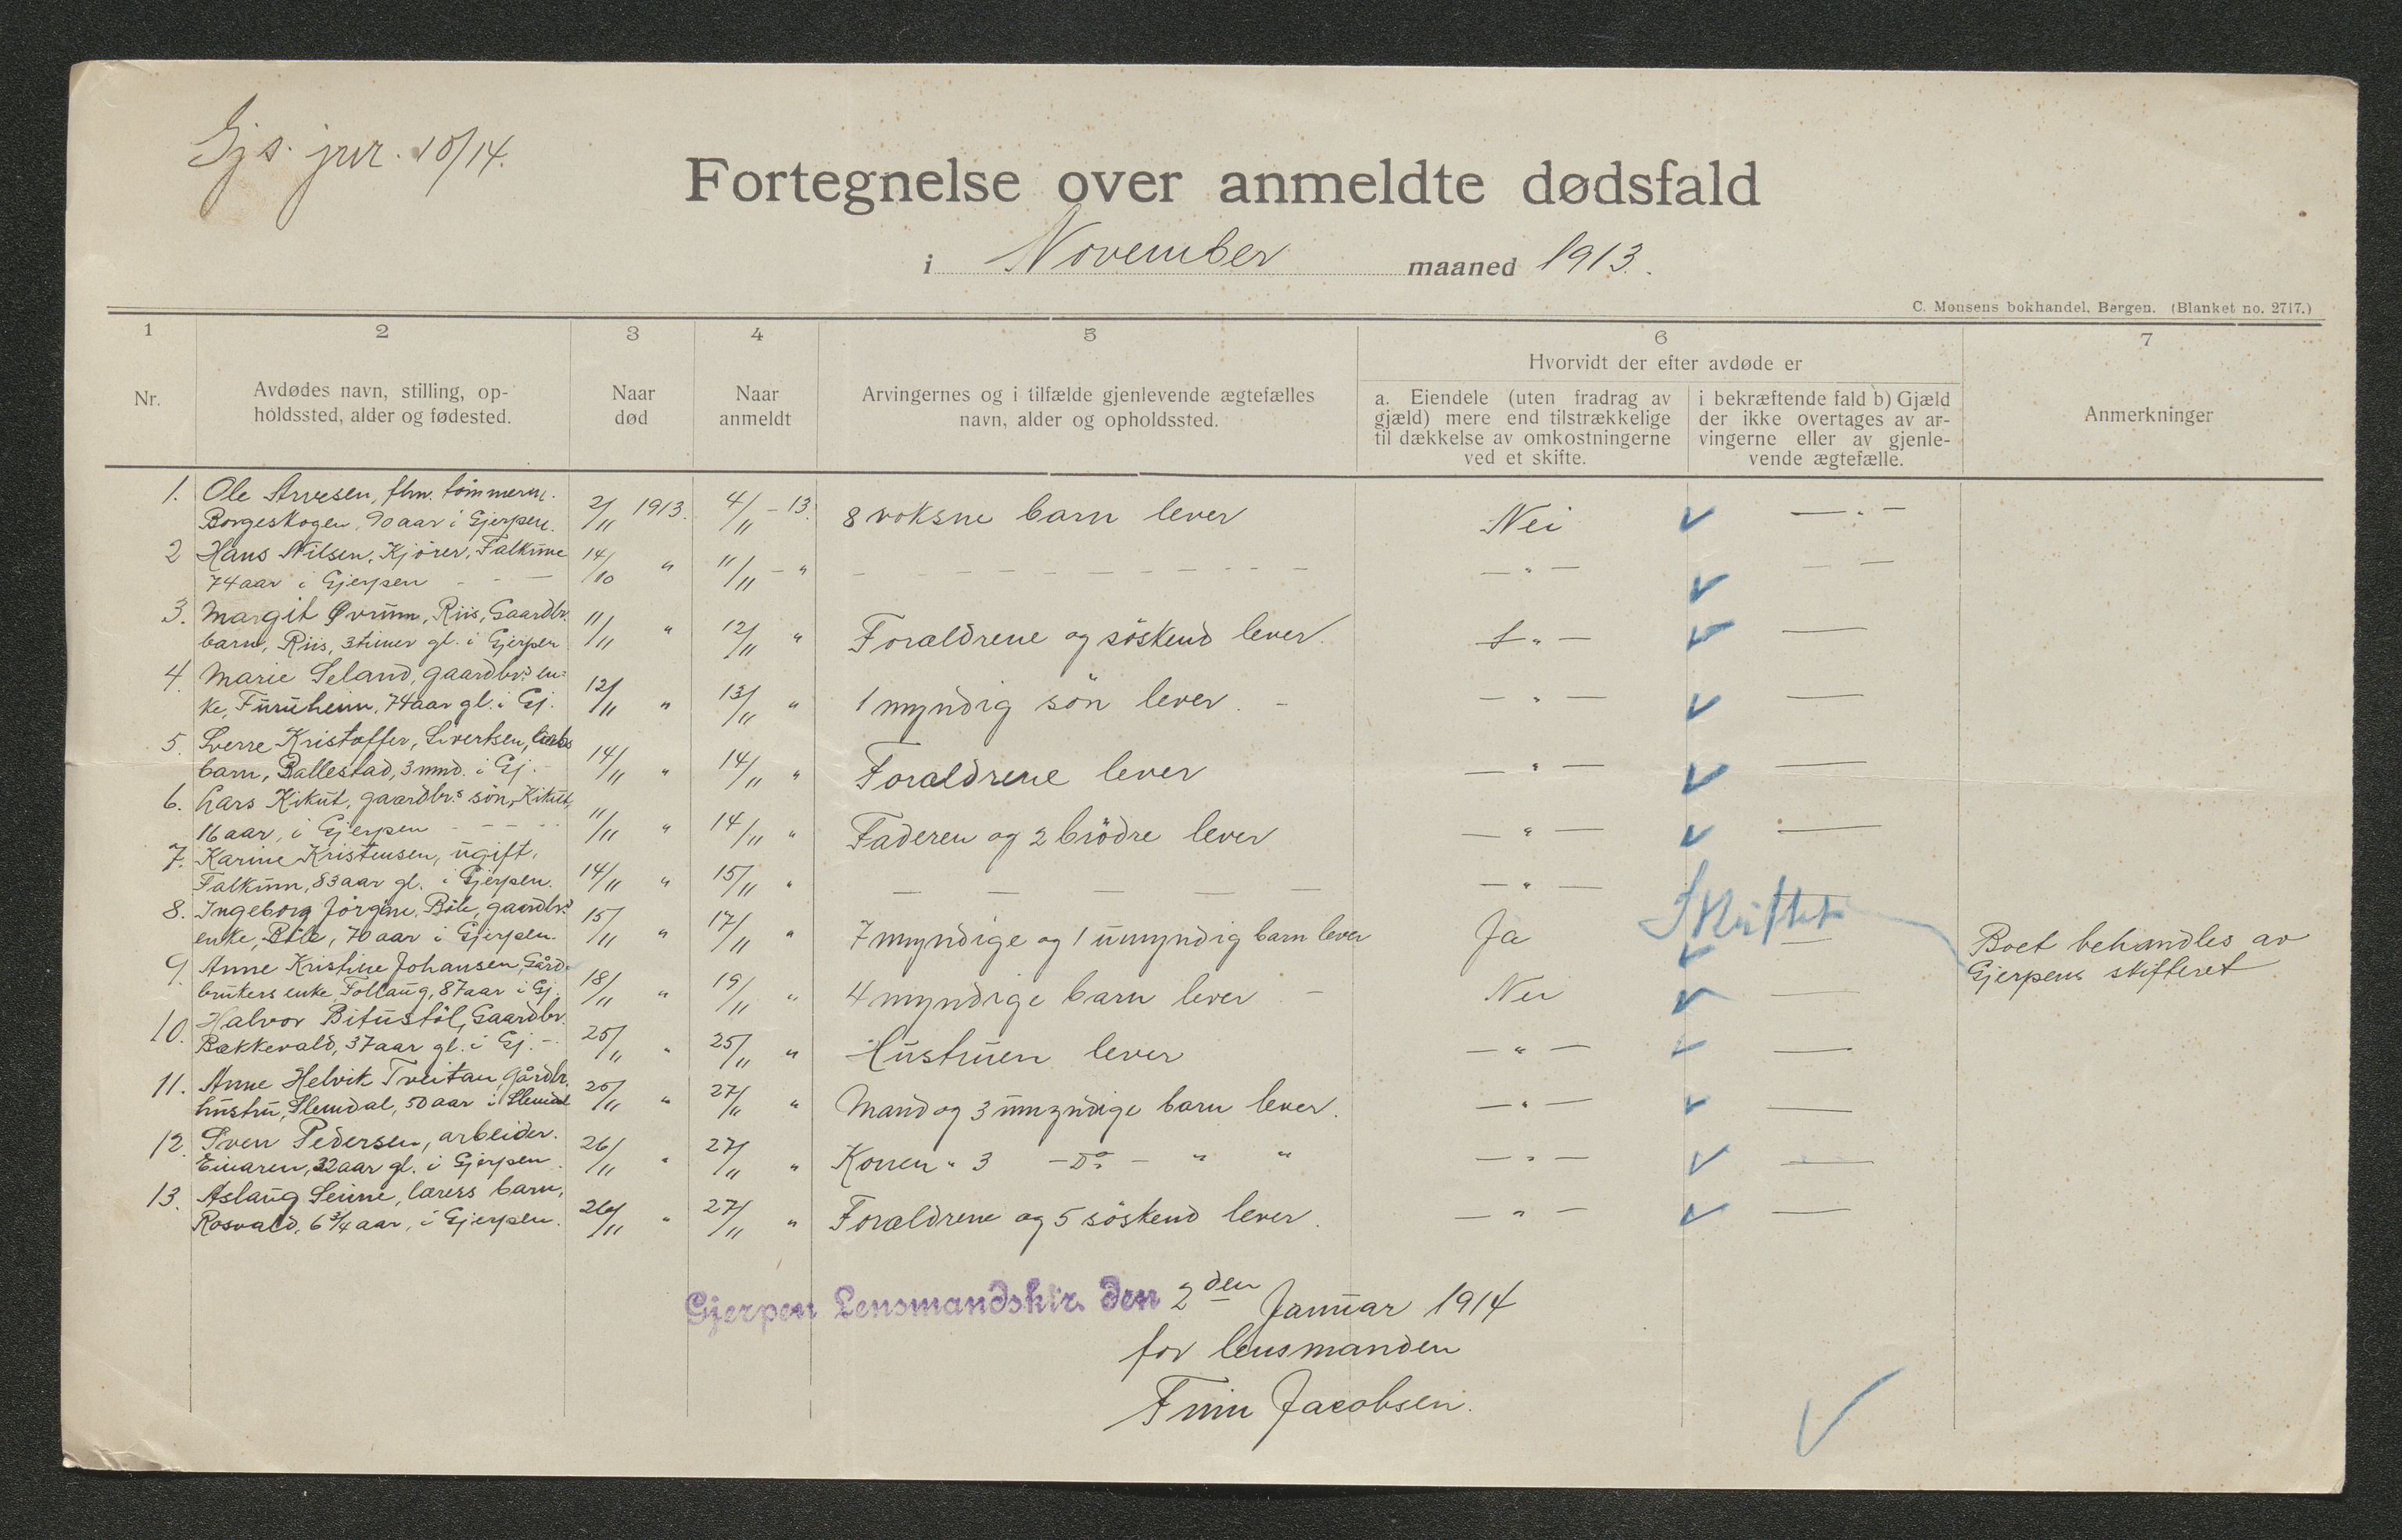 Gjs. jnr. 10/14.
Fortegnelse over anmeldte dødsfald
i November maaned 1913.
C. Monsens bokhandel, Bergen. (Blanket no. 2717.)
1 2 3 4 5 6 7
Hvorvidt der efter avdøde er
Nr.
Avdødes navn, stilling, op-
holdssted, alder og fødested.
Naar
død
Naar
anmeldt
Arvingernes og i tilfælde gjenlevende ægtefælles
navn, alder og opholdssted.
a. Eiendele (uten fradrag av
gjæld) mere end tilstrækkelige
til dækkelse av omkostningerne
ved et skifte.
i bekræftende fald b) Gjæld
der ikke overtages av ar-
vingerne eller av gjenle-
vende ægtefælle.
Anmerkninger
1. Ole Arvesen, fhv. tømmerm.
Borgeskogen, 90 aar i Gjerpen. 2/11 1913. 4/11 - 13. 8 voksne barn lever Nei — " —
2 Hans Nilsen, Kjörer, Falkum
74 aar i Gjerpen - - — 14/10 " 11/11 - " - - - - - - - - - — " — — —
3. Margit Øvrum, Riis, Gaardbr.
barn, Riis, 3 timer gl. i Gjerpen 11/11 " 12/11 " Forældrene og söskend lever. — " — —
4. Marie Seland, gaardbr.s en-
ke, Furuheim, 74 aar gl. i Gj. 12/11 " 13/11 " 1 myndig sön lever. - — " — —
5. Sverre Kristoffer, Sivertsen,
barn, Ballestad, 3 mnd. i Gj. - 14/11 " 14/11 " Forældrene lever — " — —
6. Lars Kikut, gaardbr.s sön, Kikut,
16 aar, i Gjerpen - - - - 11/11 " 14/11 " Faderen og 2 brödre lever — " — —
7. Karine Kristensen, ugift,
Falkum, 83 aar gl. i Gjerpen. 14/11 " 15/11 " — — — — — — " — Skiftet
8. Ingeborg Jörgine Böle, gaardbr.s
enke, Böle, 70 aar i Gjerpen. 15/11 " 17/11 " 7 myndige og 1 umyndig barn lever Ja — Boet behandles av
Gjerpens skifteret
9. Anne Kristine Johansen, Gård-
brukers enke, Follaug, 87 aar i Gj. 18/11 " 19/11 " 4 myndige barn lever - Nei —
10. Halvor Bitustöl, Gaardbr.
Bakkevald, 37 aar gl. i Gj. - 25/11 " 25/11 " Hustruen lever — " — —
11. Anne Helvik Treitau, gårdbr.
hustru, Slemdal, 50 aar i Slemdal 25/11 " 27/11 " Mand og 3 umyndige barn lever. — " — —
12. Sven Pedersen, arbeider.
Einaren, 32 aar gl. i Gjerpen. 26/11 " 27/11 " Konen " 3 - Do - " " — " — —
13. Aslaug Senne, lærers barn,
Rosvald, 6 3/4 aar, i Gjerpen. 26/11 " 27/11 " Forældrene og 5 söskend lever. — " — —
Gjerpen Lensmandsktr. den 2den Januar 1914
for lensmanden
Finn Jacobsen.